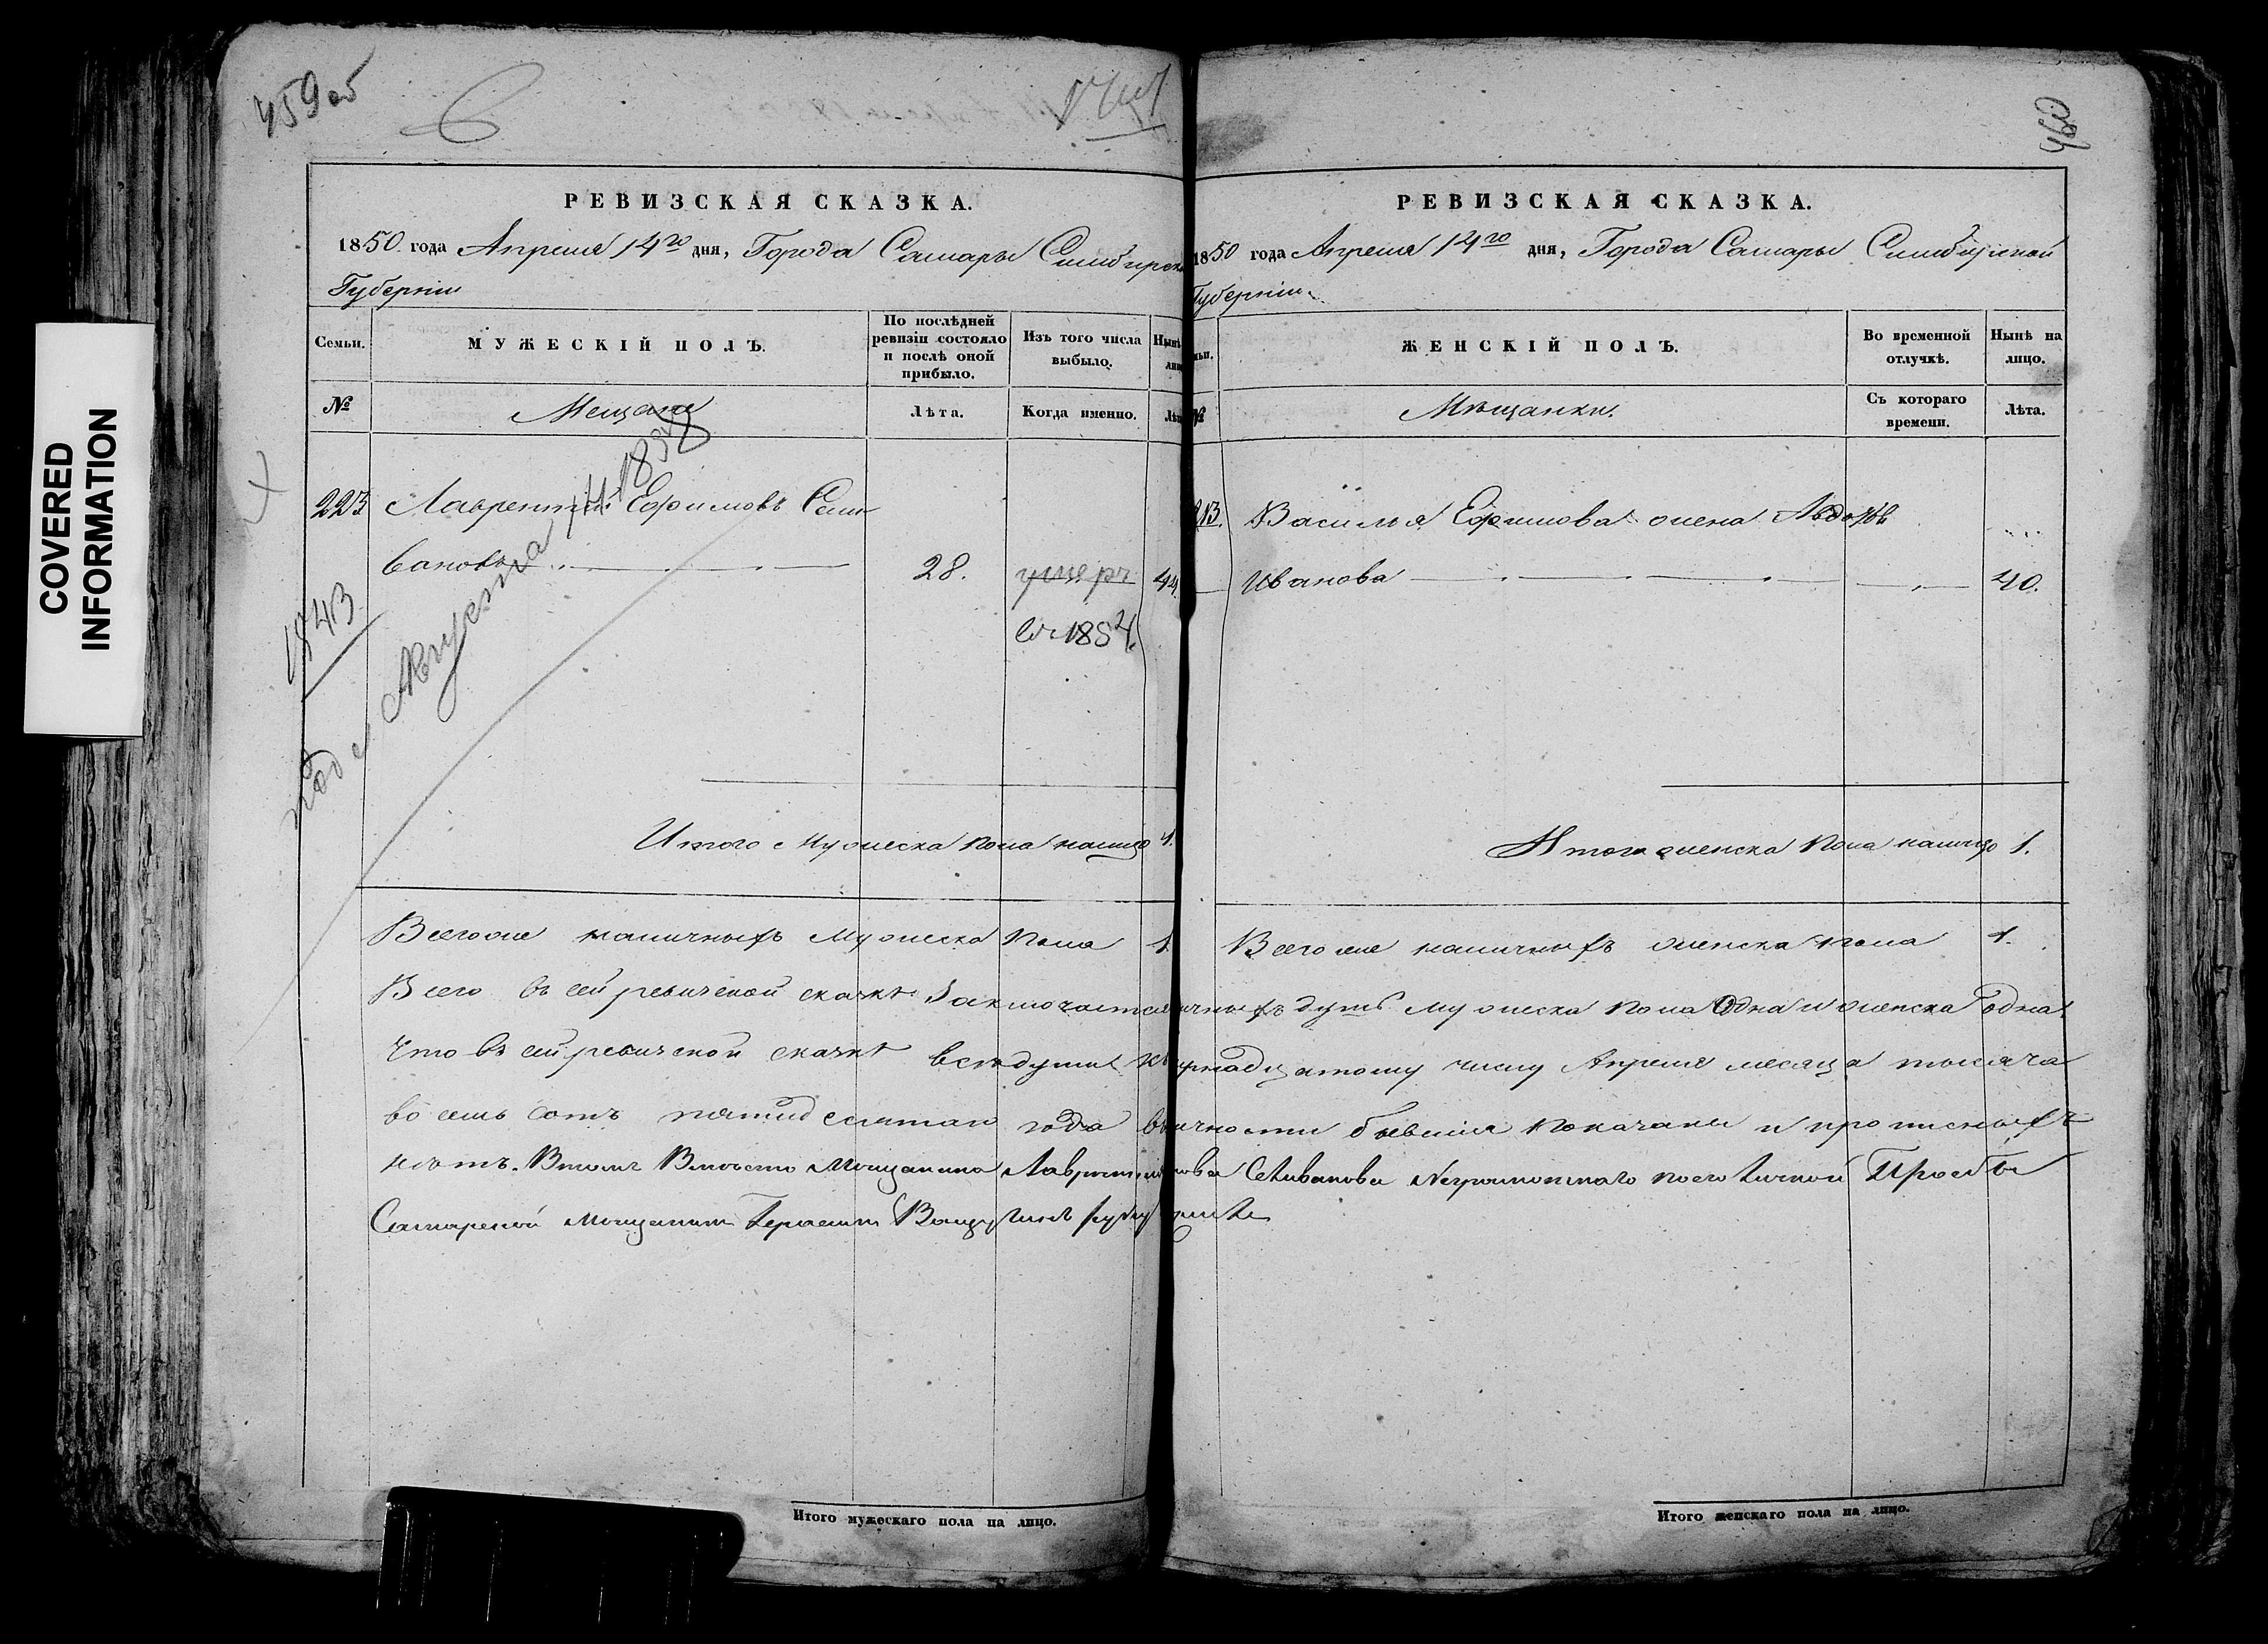 COVERED
INFORMATION
459 об
460
РЕВИЗСКАЯ СКАЗКА.
1850 года Апреля 14го дня, Города Самары Симбирск
Губернiи
Семьи.
МУЖЕСКІЙ ПОЛЪ.
По послѣдней
ревизіи состояло
и послѣ оной
прибыло.
Изъ того числа
выбыло.
Нынѣ
лиц
№
Мещане
Лѣта.
Когда именно.
Лѣт
223
Лаврентий Ефимовъ Сели
вановъ
28.
умеръ
въ 1854.
44
1838
1843
Итого мужеска пола налицо 1.
Всегоже наличныхъ мужеска пола 1.
РЕВИЗСКАЯ СКАЗКА.
1850 года Апреля 14го дня, Города Самары Симбирской
Губернiи.
ЖЕНСКІЙ ПОЛЪ.
Во временной
отлучкѣ.
Нынѣ на
лицо.
№
Мѣщанки.
Съ котораго
времени.
Лѣта.
Василья Ефимова жена Авдотья
Иванова
40.
Итого женска пола налицо 1.
Всегоже наличныхъ женска пола 1.
Всего въ сей ревизской сказкѣ заключается ичныхъ душъ мужеска пола одна и женска одна.
Что въ сей ревизской сказкѣ все души к ырнадцатому числу Апреля месяца тысяча
восемь сотъ пятидесятаго года в ичности бывшия показаны и прописныхъ
нѣтъ. Вместо мещанина Лаврентия мова Селиванова неграмотнаго по его личной прозбѣ
Самарской мещанин Герасим руку
Итого мужескаго пола на лицо.
Итого женскаго пола на лицо.